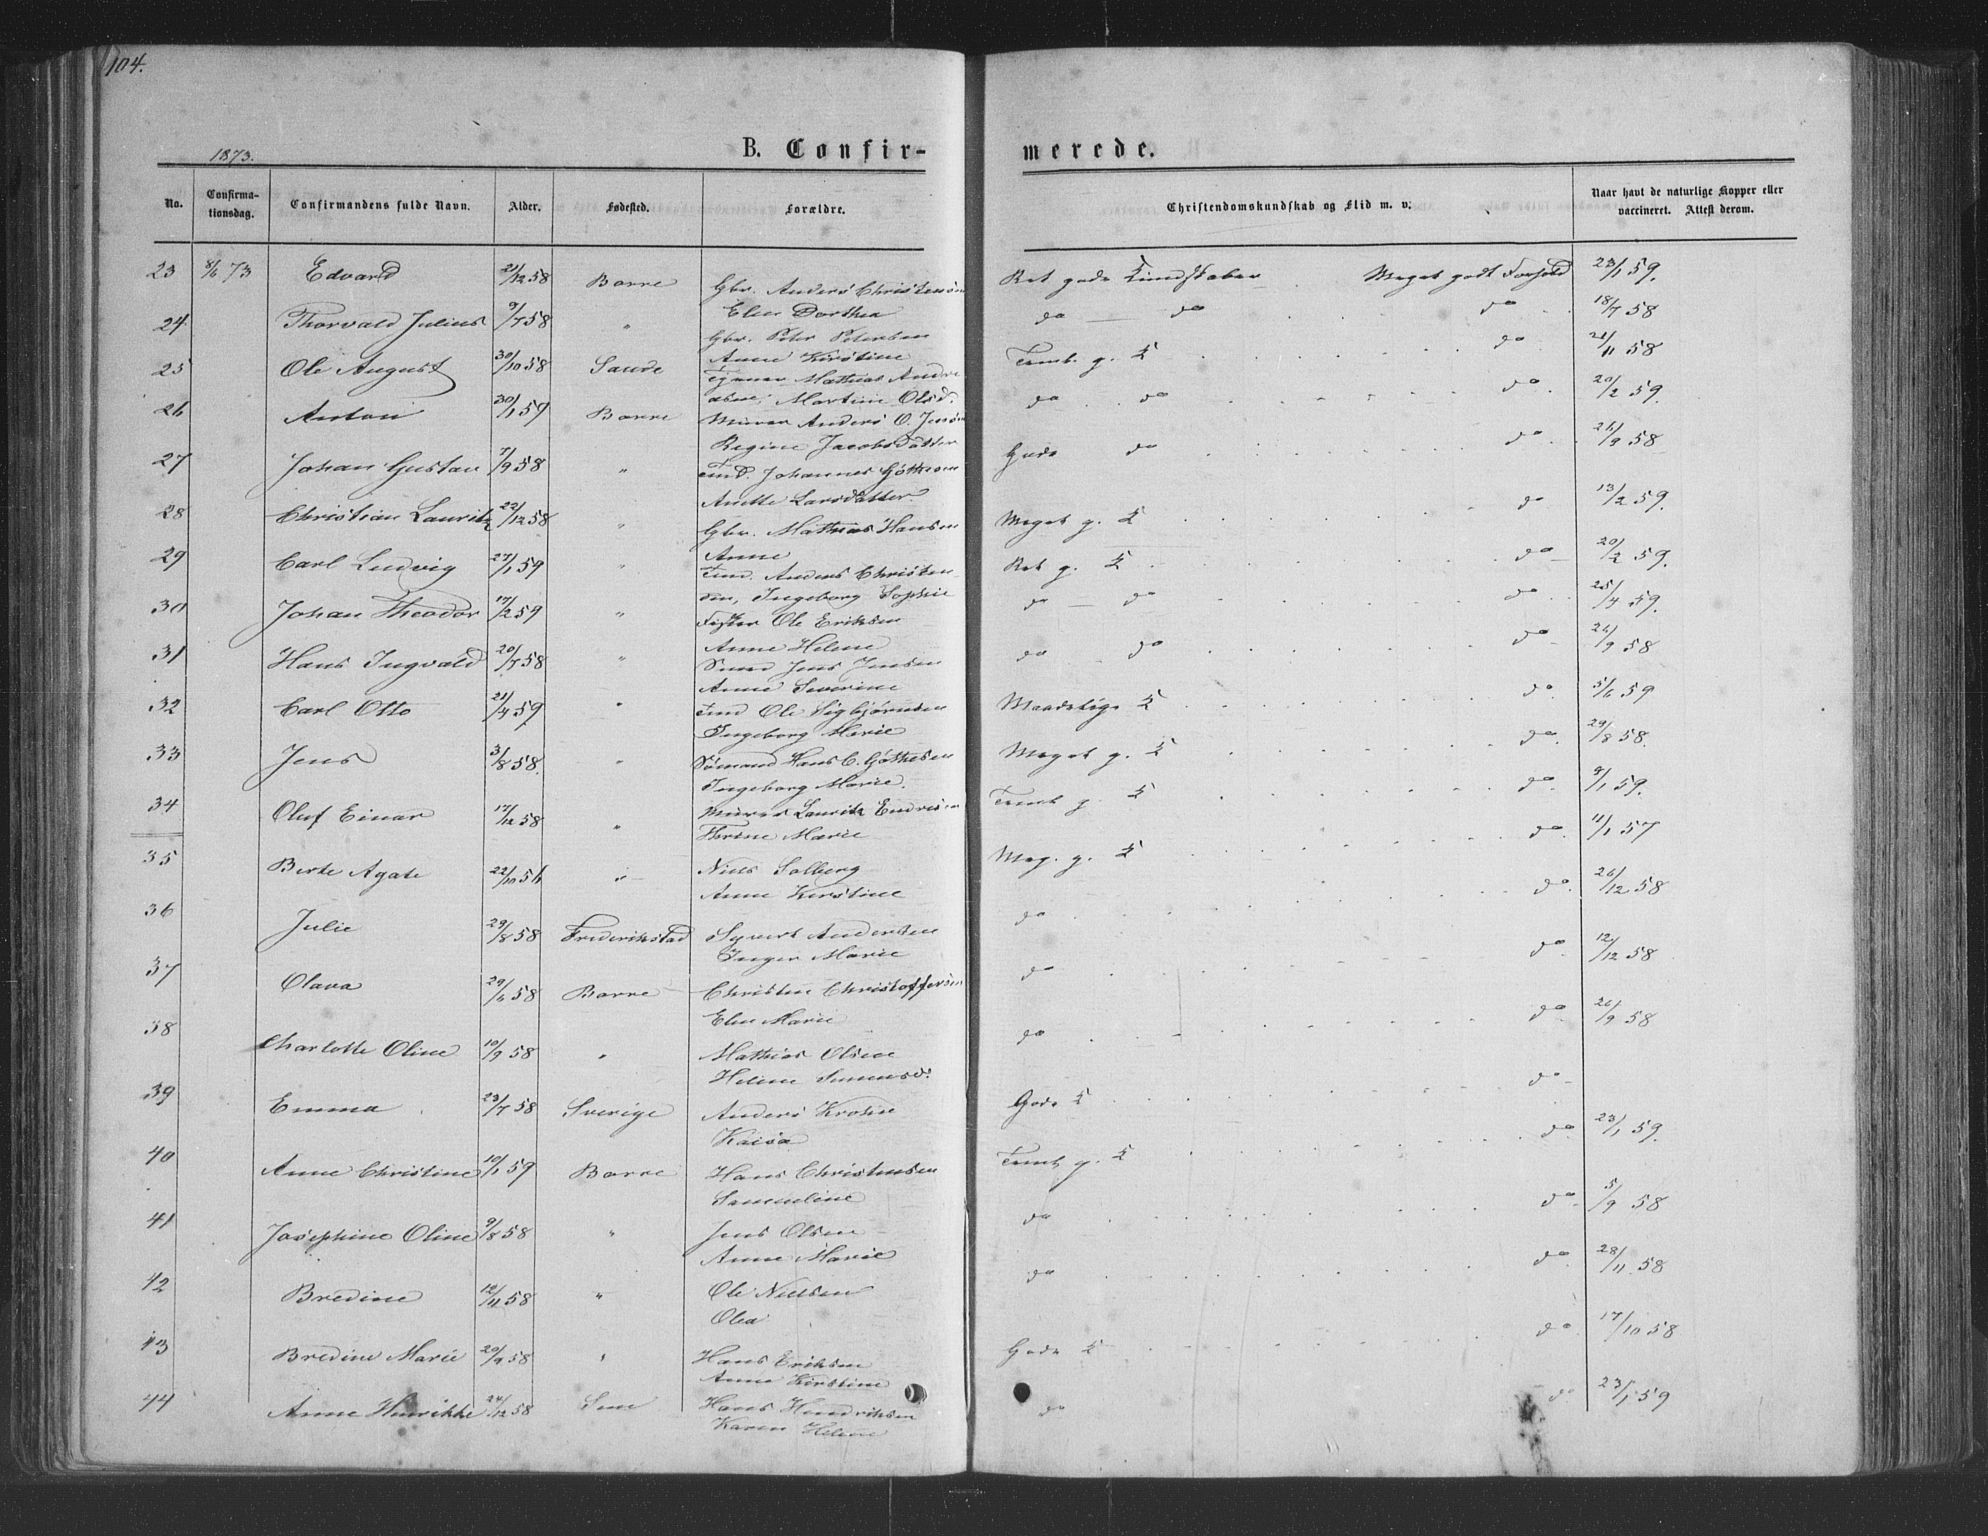 104.
1873.
B. Confir- merede.
No. Confirma-tionsdag. Confirmandens fulde Navn. Alder. Fødested. Forældre. Christendomskundskab og Flid m. v. Naar havt de naturlige Kopper eller vaccineret. Attest derom.
23 8/6 73 Edvard 21/12 58 Borre Gbr. Anders Christensøn Ret gode Kundskaber Meget godt Forhold 23/1 59.
Elen Dorthea
24 Thorvald Julius 9/7 58 " Gbr. Peter Petersen do do do 18/7 58
Anne Kirstine
25 Ole August 30/10 58 Sande Mathias Andre Teml. g. K do 21/11 58
asen, Martine Olsd.
26 Anton 30/1 59 Borre Murer Anders O. Jensøn do do do 20/2 59.
Regine Jacobsdatter
27 Johan Gustav 7/9 58 " Tmd. Johannes Gøthesen Gode do do 26/9 58
Anette Larsdatter
28 Christian Lauritz 22/12 58 " Gbr. Mathias Hansen Meget g. K do 13/2 59.
Anne
29 Carl Ludvig 27/1 59 " Tmd. Anders Christen Ret g. K do 20/2 59.
sen, Ingeborg Sophie
30 Johan Theodor 17/2 59 " Ole Eriksen do do do 25/4 59.
Anne Helene
31 Hans Ingvald 20/7 58 " Smed Jens Jensen do do do 26/9 58
Anne Severine
32 Carl Otto 21/4 59 " Tmd Ole Sigbjørnsen Maadelige K do 5/6 59
Ingeborg Marie
33 Jens 3/8 58. " Sømand Hans C. Gøthesen Meget g. K do. 29/8 58.
Ingeborg Marie.
34 Oluf Einar 17/12 58 " Murer Lauritz Endresen Teml g. K do. 9/1 59.
Thrine Marie
35 Berte Agate 22/10 56 " Niels Solberg Meg. g. K do. 11/1 57
Anne Kirstine
36 Julie 29/8 58 Frederikstad Syvert Andersen do do. 26/12 58
Inger Marie
37 Olava 29/6 58 Borre Christen Christoffersen do do. 12/12 58
Elen Marie
38 Charlotte Oline 10/9 58 " Mathias Olsen do do 26/9 58
Helene
39 Emma 23/7 58 Sverige Anders Gode K do
Kaisa
40 Anne Christine 10/1 59 Borre Hans Christensen Teml g. K do. 23/1 59.
Samueline
41 Josephine Oline 9/8 58 " Jens Olsen do do 5/9 58
Anne Marie
42 Bredine 12/11 58 " Ole Nielsen do do. 28/11 58
Olea
43 Bredine Marie 20/9 58 " Hans Eriksen Gode K do. 17/10 58
Anne Kirstine
44 Anne Henrikke 24/12 58 Sem Hans Hendriksen do do 23/1 59
Karen Helene